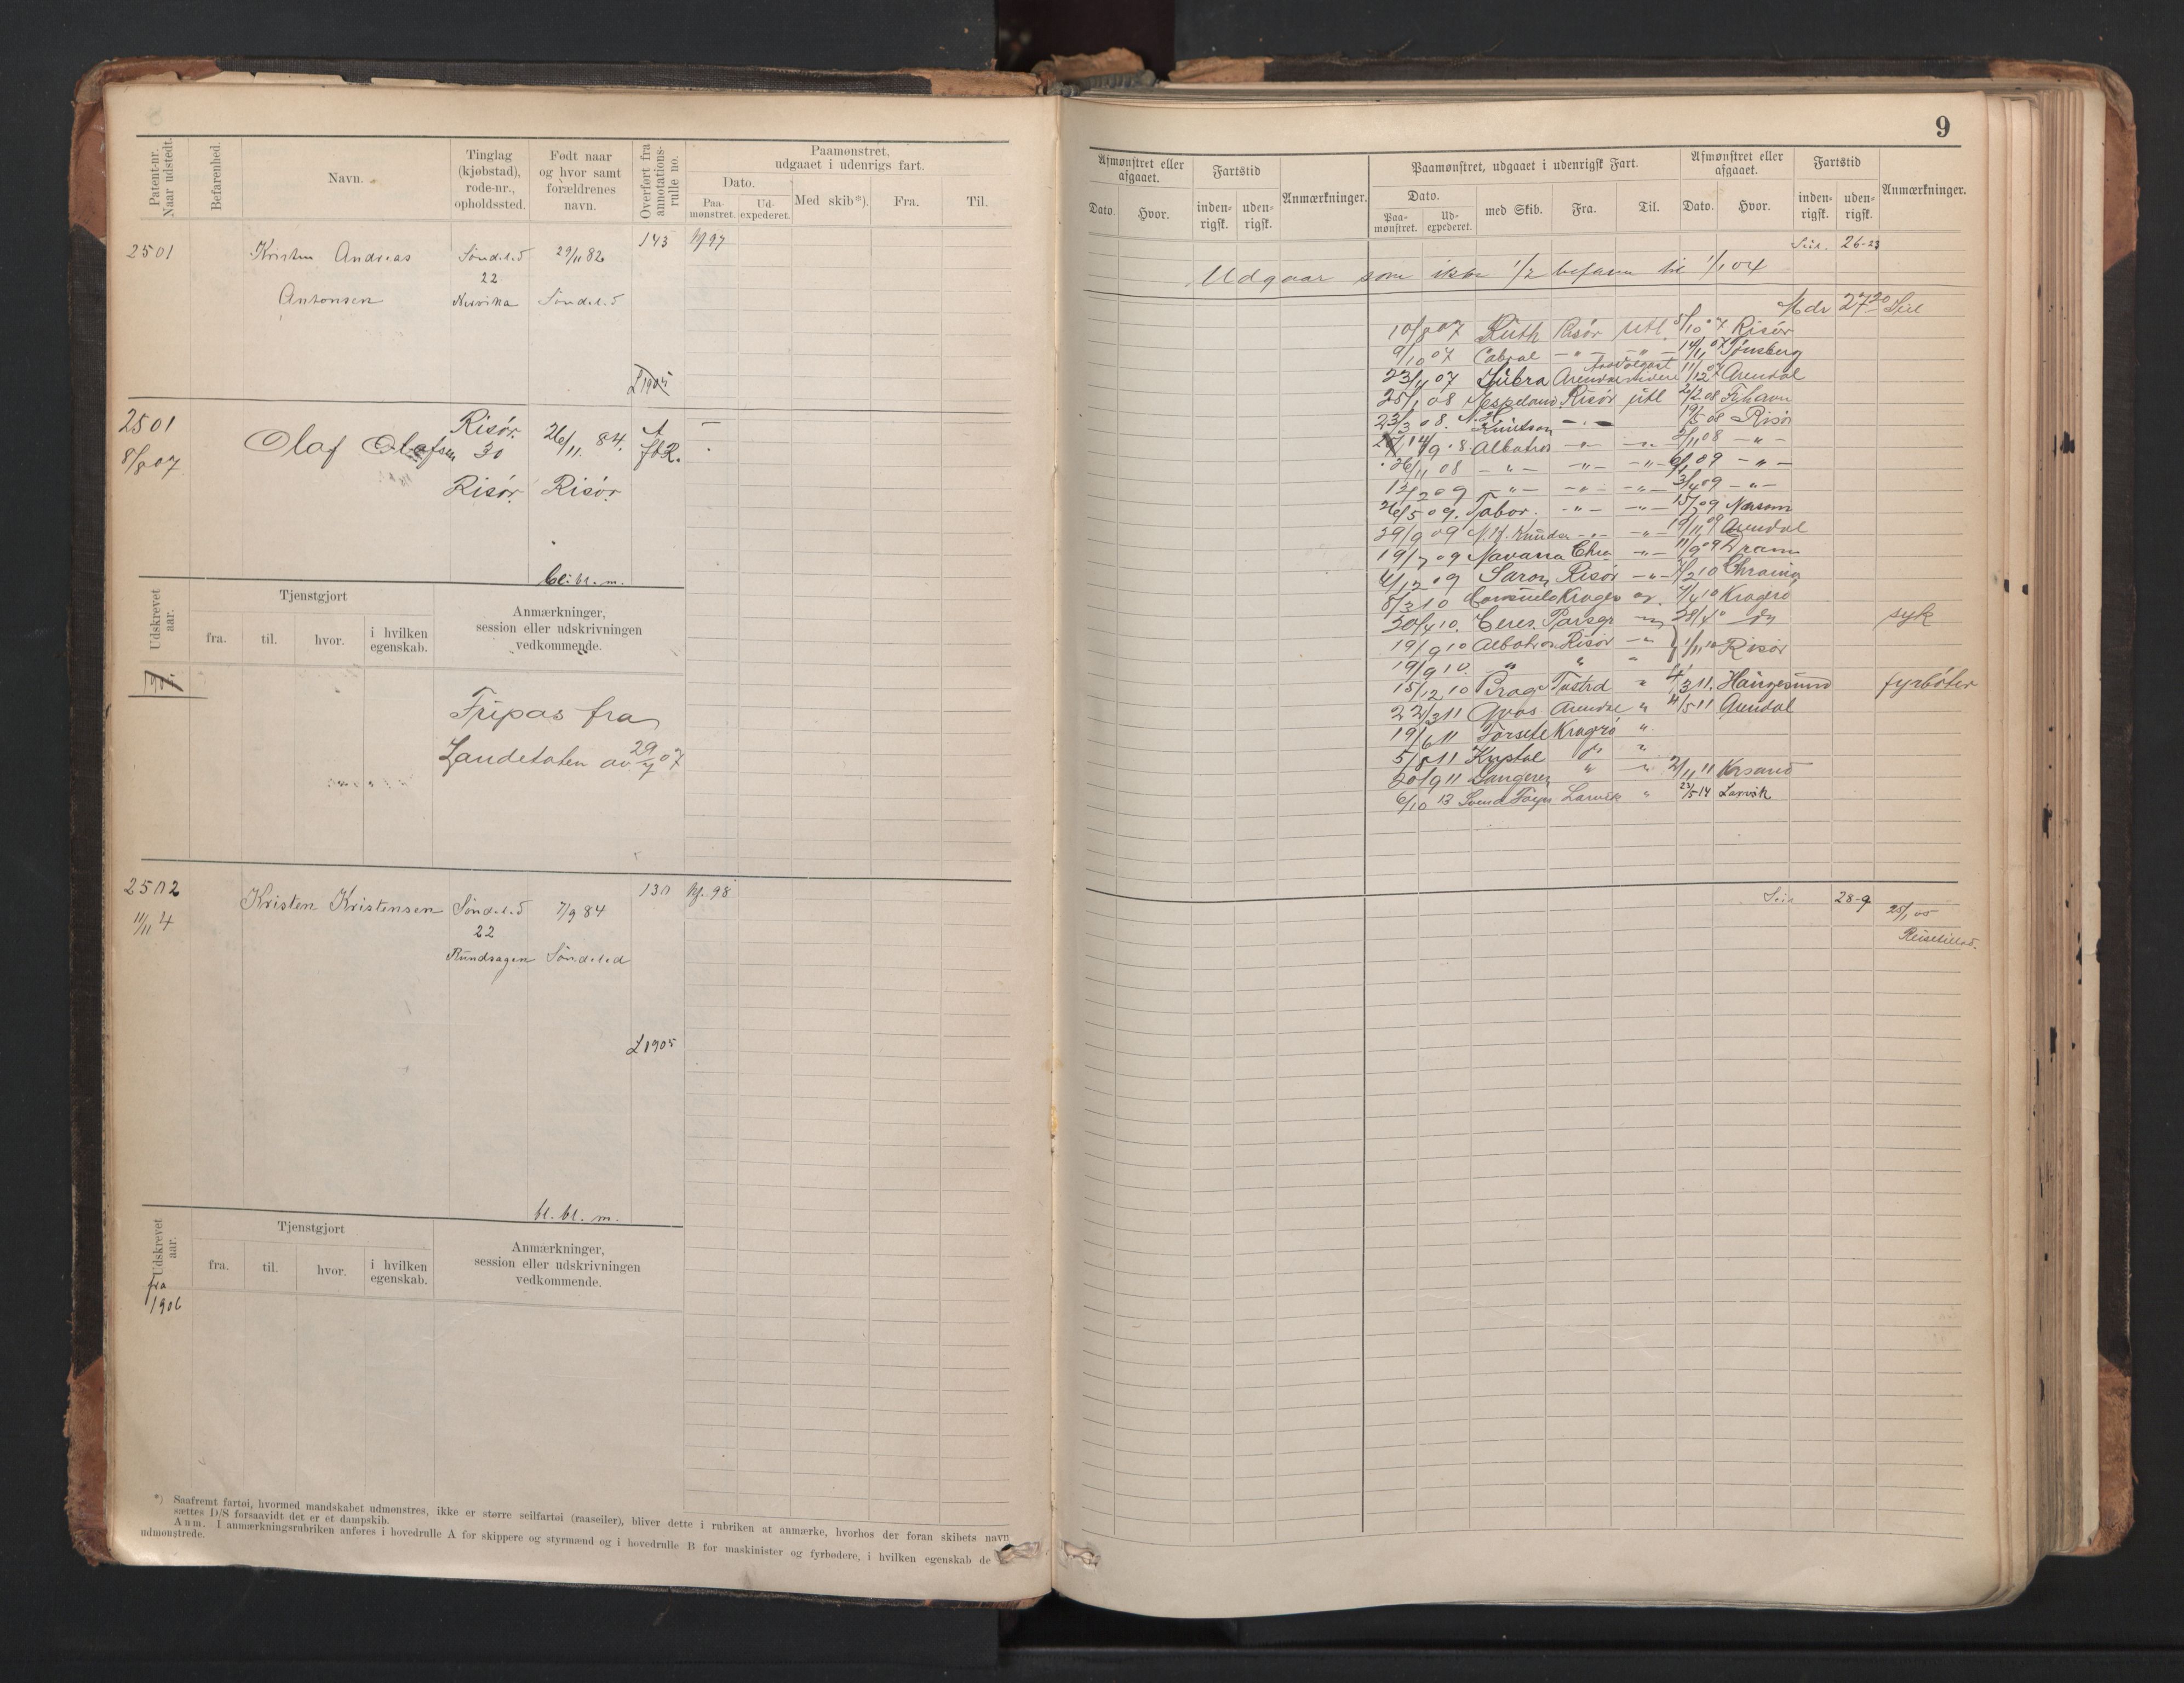 Patent-nr. Naar udstedt.
Befarenhed.
Navn.
Tinglag (kjøbstad), rode-nr., opholdssted.
Født naar og hvor samt forældrenes navn.
Overført fra annotations-rulle no.
Paamønstret, udgaaet i udenrigs fart.
Dato.
Paa-mønstret.
Ud-expederet.
Med skib*).
Fra.
Til.
2501 Kristen Andreas Søndeled 29/11 82 143 97
22
Antonsen Søndeled
L 1905
2501 Olaf Olafsen Risør. 26/11. 84. A
8/8 07 30
Risør. Risør.
bl. m.
Udskrevet aar.
Tjenstgjort
fra. til. hvor. i hvilken egenskab.
Anmærkninger, session eller udskrivningen vedkommende.
Fripas fra
Landetaten av 29/7 07
2502 Kristen Kristensen Søndeled 7/9 84 130 98
11/11 4 22
Rundsagen Søndeled
L 1905
bl. bl. m.
Udskrevet aar.
Tjenstgjort
fra. til. hvor. i hvilken egenskab.
Anmærkninger, session eller udskrivningen vedkommende.
fra
1906
*) Saafremt fartøi, hvormed mandskabet udmønstres, ikke er større seilfartøi (raaseiler), bliver dette i rubriken at anmærke, hvorhos der foran skibets navn
sættes D/S forsaavidt det er et dampskib.
Anm. I anmærkningsrubriken anføres i hovedrulle A for skippere og styrmænd og i hovedrulle B for maskinister og fyrbødere, i hvilken egenskab de
udmønstrede.
9
Afmønstret eller afgaaet.
Dato Hvor.
Fartstid
inden-rigsk. uden-rigsk.
Anmærkninger.
Paamønstret, udgaaet i udenrigsk Fart.
Dato.
Paa-mønstret. Ud-expederet.
med Skib. Fra. Til.
Afmønstret eller afgaaet.
Dato. Hvor.
Fartstid
inden-rigsk. uden-rigsk.
Anmærkninger.
Seil. 26-23
Udgaar som ikke 1/2 befaren til 1/1 04
Mdr 27 20 Seil
10/8 07 Ruth Risør Utl 5/10 07 Risør
9/10 07 Cabral - " - - " - 14/11 07 Tønsberg
23/11 07 Jubra Arendal 11/12 07 Arendal
25/1 08 Espeland Risør utl 2/2 08
23/3 08. Knutson - " - 19/5 08 Risør
14/9 08 Albatros - " - - " - 2/11 08 - " -
26/11 08 - " - - " - - " - 6/1 09 - " -
13/2 09 - " - - " - - " - 3/4 09 - " -
26/5 09. Tabor. - " - - " - 15/7 09
29/9 09 Knudsen - " - - " - 19/11 09 Arendal
19/7 09 Navarra Chra - " - 11/9 09 Dram
4/12 09 Saron Risør - " - 2 10 Chrania
8/3 10 Kragerø 4/4 10 Kragerø
20/4 10. Ceres. Porsgr 28/4 10 syk
19/9 10 Albatros Risør - " 1/11 10 Risør
19/9 10. " " "
15/12 10 Brage " 4/3 11. Haugesund fyrbøter
22/3 11 Arendal " 4/5 11 Arendal
19/6 11 Forsete Kragrø "
5/8 11 Krystal do "
20/9 11 Langesø " " 2/11 11 Krsand
6/10 13 Svend Foyn Larvik " 23/5 14 Larvik
Seil 28-9 25/1 05
Reisetillad.